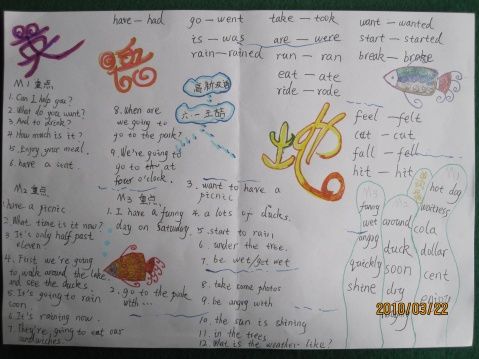 have — had
go — went
take — took
want — wanted
is — was
are — were
start — started
rain — rained
run — ran
break — broke
eat — ate
ride — rode
feel — felt
cat — cat
fall — fell
hit — hit
英
语
高新双语
六·一主皓
M1 重点
1. Can I help you?
2. What do you want?
3. And to drink?
4. How much is it?
5. Enjoy your meal.
6. have a seat.
8. when are
we going to
go to the park?
9. We're going to
go to the at
four o'clock.
M2 重点
1. have a picnic
2. What time is it now?
3. It's only half past
eleven.
4. First we're going
to walk around the lake
and see the ducks.
5. It's going to rain
soon.
6. It's raining now.
7. They're going to eat our
sandwiches.
M3 重点
1. I have a funny
day on Saturday.
2. go to the park
with...
3. want to have a
picnic
4. a lots of ducks.
5. start to rain
6. under the tree.
7. be wet/get wet
8. take some photos
9. be angry with
10. the sun is shining
11. in the trees
12. What is the weather like?
M3
funny
wet
angry
quickly
shine
M2
around
duck
soon
dry
M1
hot dog
waitress
cola
dollar
cent
enjoy
2010/03/22